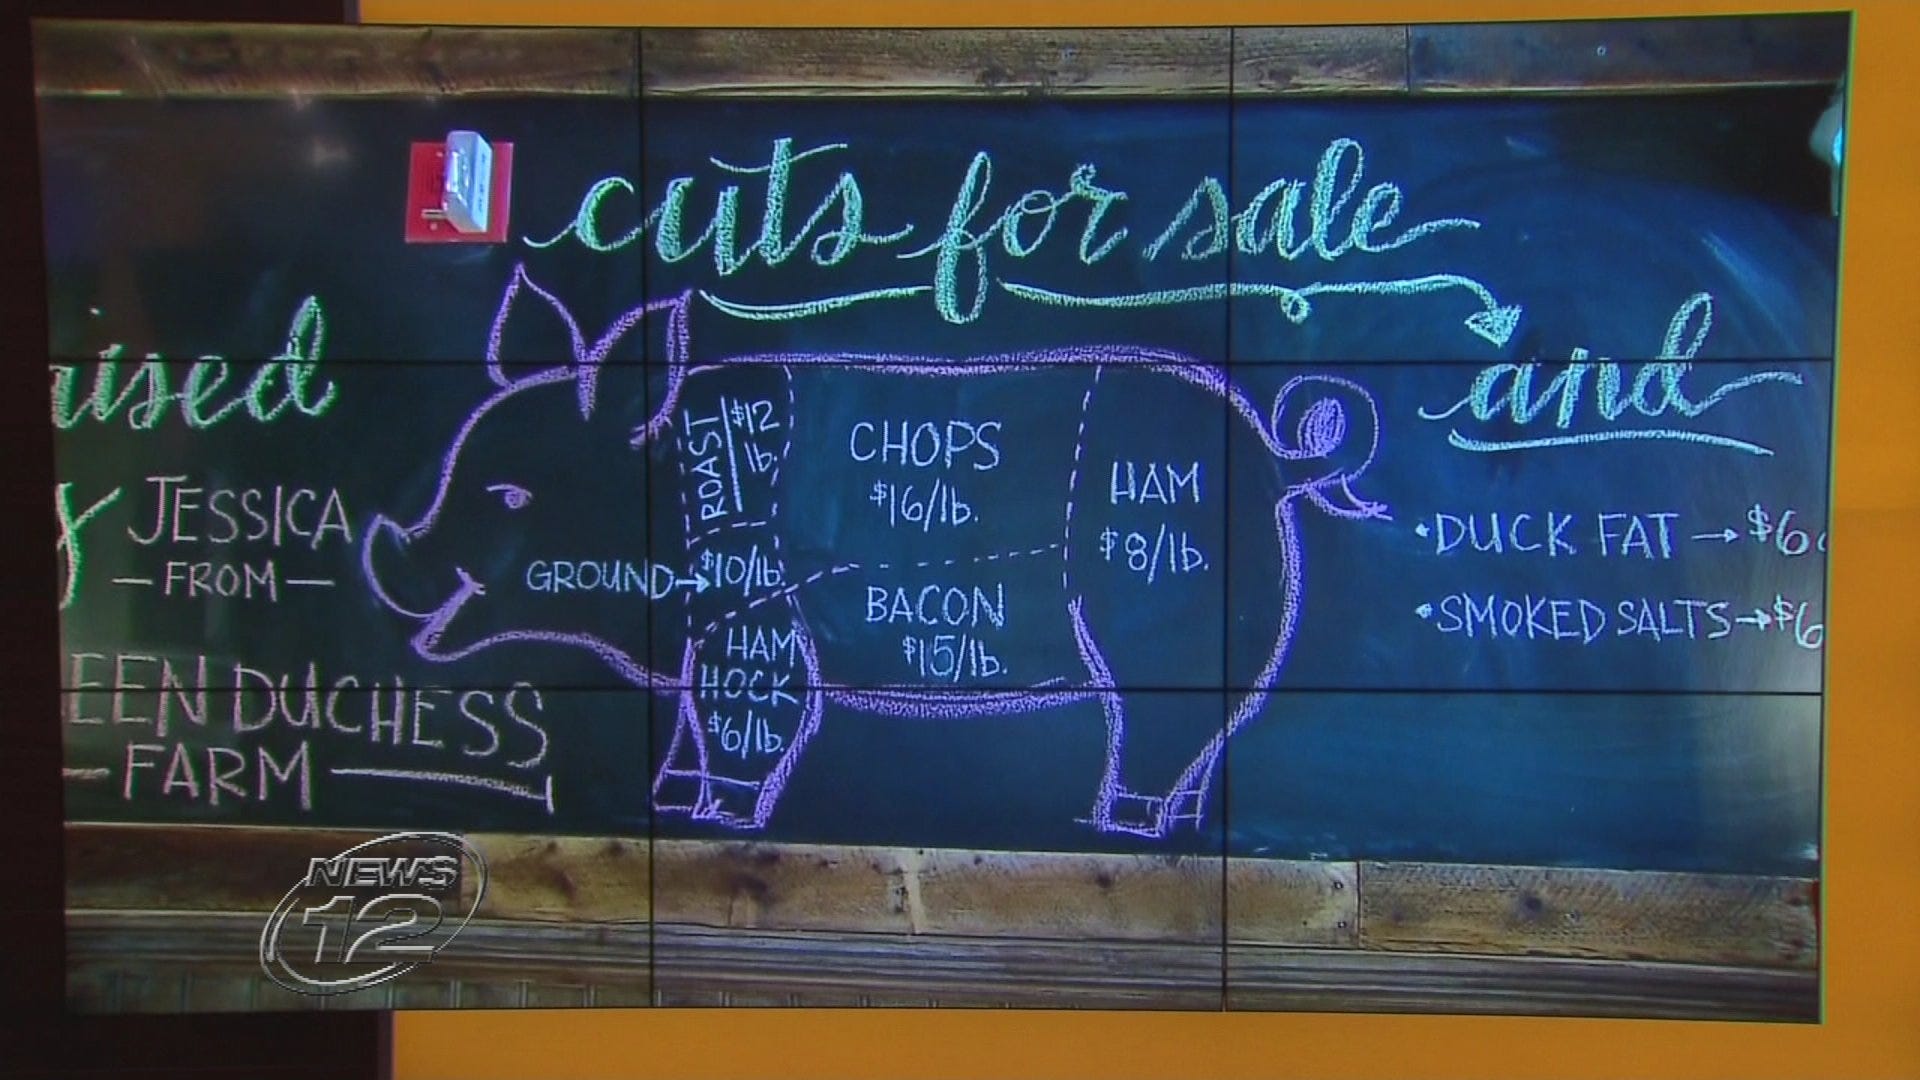 cuts for sale
JESSICA
— FROM —
DUCHESS
FARM
ROAST $12 lb.
GROUND→ $10/lb.
HAM
HOCK
$6/lb.
CHOPS
$16/lb.
BACON
$15/lb.
HAM
$8/lb.
and
•DUCK FAT →$6
•SMOKED SALTS→$6
NEWS
12